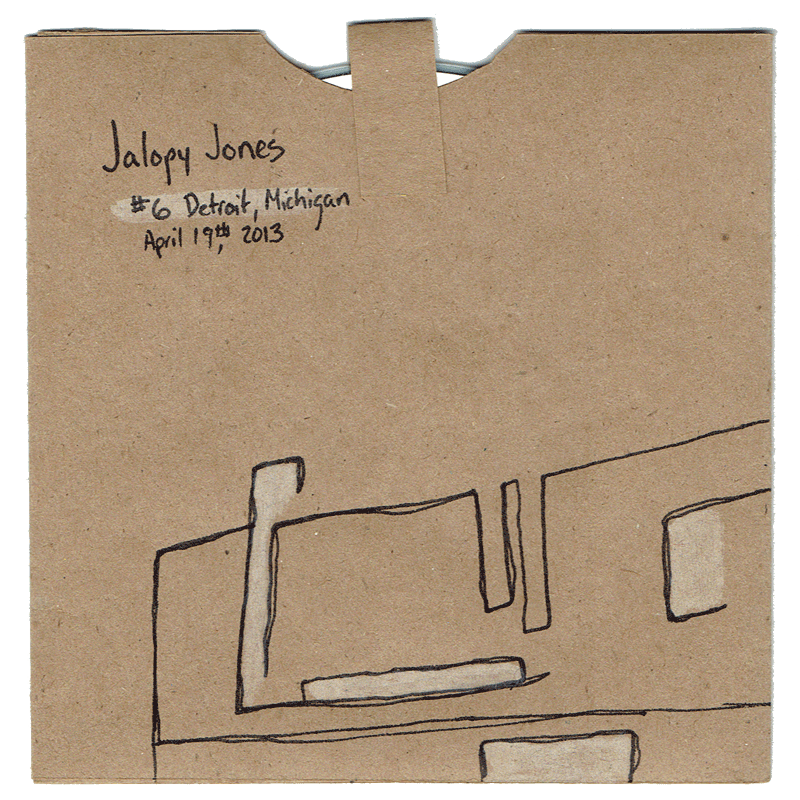 Jalopy Jones
#6 Detroit, Michigan
April 19th, 2013